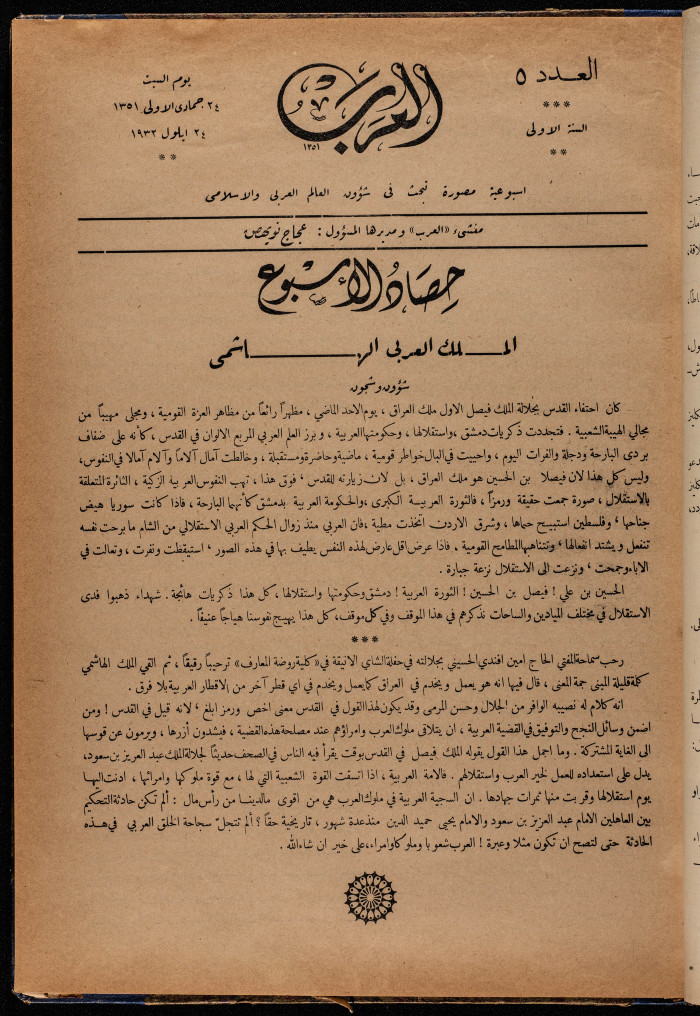 العدد ٥
***
السنة الاولى
**
العرب
١٣٥١
يوم السبت
٢٤ جمادى الاولى ١٣٥١
٢٤ ايلول ١٩٣٢
**
اسبوعية مصورة تبحث في شؤون العالم العربي والاسلامي
منشيء «العرب» ومديرها المسؤول : عجاج نويهض
حصاد الأسبوع
الملك العربي الهاشمي
شؤون وشجون
كان احتفاء القدس بجلالة الملك فيصل الاول ملك العراق ، يوم الاحد الماضي ، مظهراً رائعاً من مظاهر العزة القومية ، ومجلى مهيباً من
مجالي الهيبة الشعبية . فتجددت ذكريات دمشق ، واستقلالها ، وحكومتها العربية ، وبرز العلم العربي المربع الالوان في القدس ، كأنه على ضفاف
بردى البارحة ودجلة والفرات اليوم ، واحييت في البال خواطر قومية ، ماضية وحاضرة ومستقبلة ، وخالطت آمال آلاماً وآلام آمالا في النفوس ،
وليس كل هذا لان فيصلا بن الحسين هو ملك العراق ، بل لان زيارته للقدس ، فوق هذا ، تهب النفوس العربية الزكية ، الثائرة المتعلقة
بالاستقلال ، صورة جمعت حقيقة ورمزاً ، فالثورة العربية الكبرى ، والحكومة العربية بدمشق كأنهما البارحة ، فاذا كانت سوريا هيض
جناحها ، وفلسطين استبيح حماها ، وشرق الاردن اتخذت مطية ، فان العربي منذ زوال الحكم العربي الاستقلالي من الشام ما برحت نفسه
تنفعل ويشتد انفعالها ، وتتناهبها المطامح القومية ، فاذا عرض اقل عارض لهذه النفس يطيف بها في هذه الصور ، استيقظت ونفرت ، وتعالت في
الاباء وجمحت ، ونزعت الى الاستقلال نزعة جبارة .
الحسين بن علي ! فيصل بن الحسين ! الثورة العربية ! دمشق وحكومتها واستقلالها ، كل هذا ذكريات هائجة . شهداء ذهبوا فدى
الاستقلال في مختلف الميادين والساحات نذكرهم في هذا الموقف وفي كل موقف ، كل هذا يهيج نفوسنا هياجاً عنيفاً .
***
رحب سماحة المفتي الحاج امين افندي الحسيني بجلالته في حفلة الشاي الانيقة في «كلية روضة المعارف» ترحيباً رقيقاً ، ثم القى الملك الهاشمي
كلمة قليلة المبنى جمة المعنى ، قال فيها انه هو يعمل ويخدم في العراق كما يعمل ويخدم في اي قطر آخر من الاقطار العربية بلا فرق .
انه كلام له نصيبه الوافر من الجلال وحسن المرمى وقد يكون لهذا القول في القدس معنى اخص ورمز ابلغ ، لانه قيل في القدس ! ومن
اضمن وسائل النجح والتوفيق في القضية العربية ، ان يتلاقى ملوك العرب وامراؤهم عند مصلحة هذه القضية ، فيشدون أزرها ، ويرمون عن قوسها
الى الغاية المشتركة . وما اجمل هذا القول يقوله الملك فيصل في القدس بوقت يقرأ فيه الناس في الصحف حديثاً لجلالة الملك عبد العزيز بن سعود ،
يدل على استعداده للعمل لخير العرب واستقلالهم . فالامة العربية ، اذا اتسقت القوة الشعبية التي لها ، مع قوة ملوكها وامرائها ، ادنت اليها
يوم استقلالها وقربت منها ثمرات جهادها . ان السجية العربية في ملوك العرب هي من اقوى ما لدينا من رأس مال : ألم تكن حادثة التحكيم
بين العاهلين الامام عبد العزيز بن سعود والامام يحيى حميد الدين منذ عدة شهور ، تاريخية حقاً ؟ ألم تتجلّ سجاحة الخلق العربي في هذه
الحادثة حتى لتصح ان تكون مثلا وعبرة ! العرب شعوبا وملوكا وامراء ، على خير ان شاء الله .